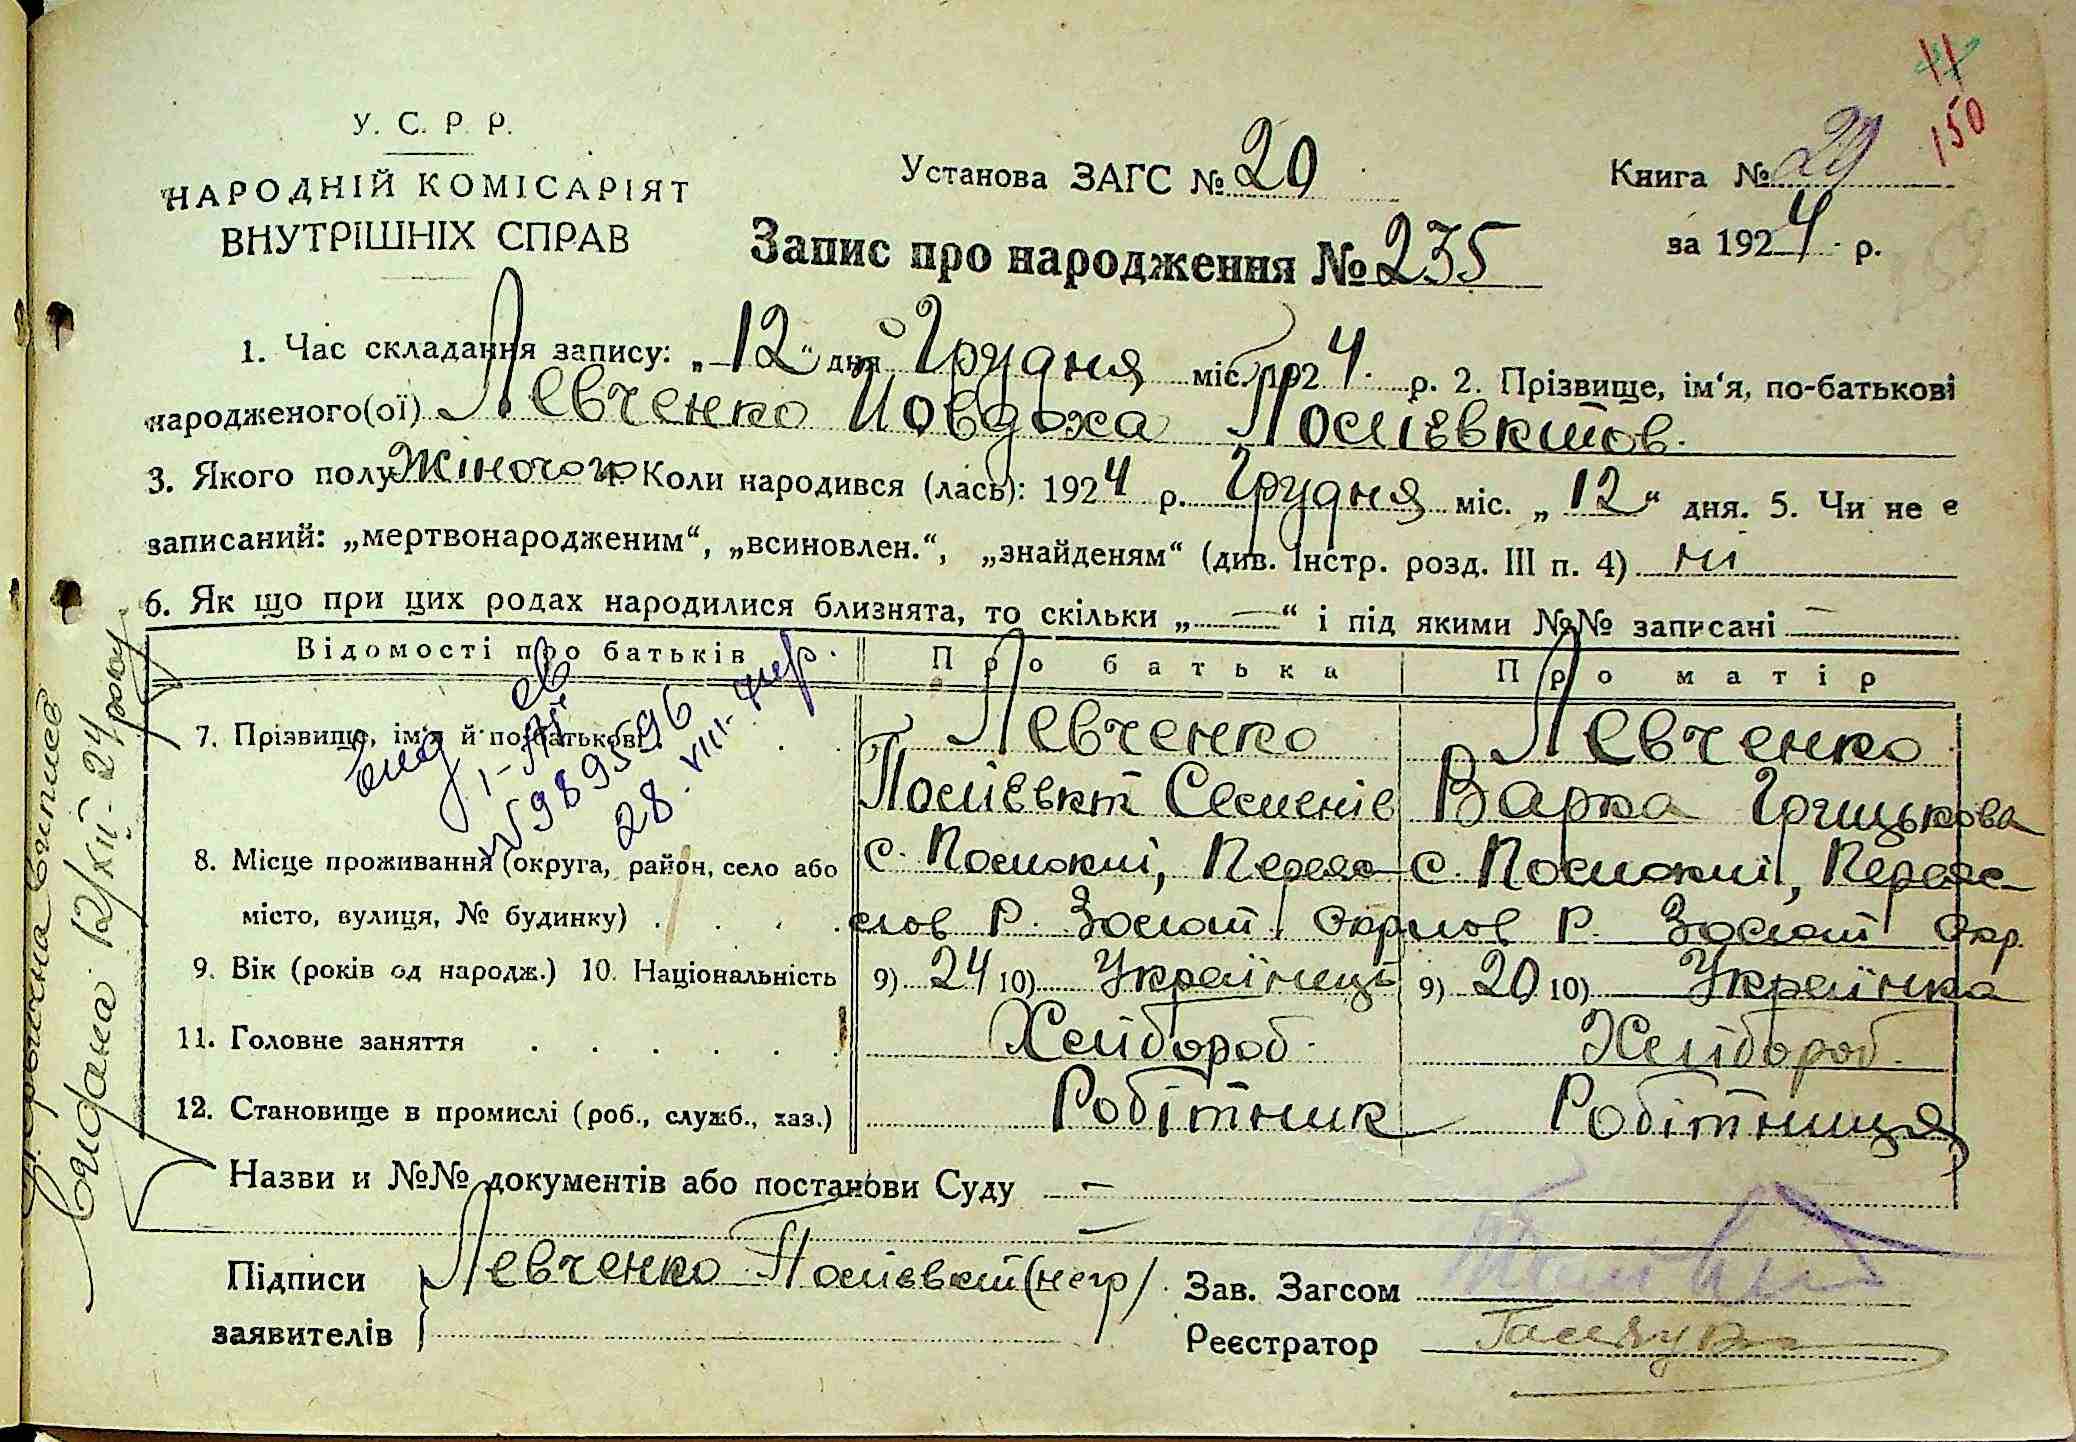 У. С. Р. Р.
НАРОДНІЙ КОМІСАРІЯТ
ВНУТРІШНІХ СПРАВ
Установа ЗАГС № 20
Книга № 20
150
за 1924 р.
Запис про народження № 235
1. Час складання запису: „12“ дня Грудня міс. 1924 р. 2. Прізвище, ім‘я, по-батькові
народженого(ої) Левченко Йовдоха Поліевктов.
3. Якого полу Жіночого 4. Коли народився (лась): 1924 р. Грудня міс. „12“ дня. 5. Чи не є
записаний: „мертвонародженим“, „всиновлен.“, „знайденям“ (див. Інстр. розд. III п. 4) ні
6. Як що при цих родах народилися близнята, то скільки „—“ і під якими №№ записані —
Відомості про батьків Про батька Про матір
7. Прізвище, ім‘я й по-батькові Левченко Левченко
Поліевкт Семенів Варка Грицькова
8. Місце проживання (округа, район, село або с. Помоклі, Переяс- с. Помоклі, Переяс-
місто, вулиця, № будинку) лов Р. Золот. Окр. лов Р. Золот Окр.
9. Вік (років од народж.) 10. Національність 9) 24 10) Українець 9) 20 10) Українка
11. Головне заняття Хлібороб. Хлібороб.
12. Становище в промислі (роб., служб., хаз.) Робітник Робітниця
Назви и №№ документів або постанови Суду —
—
Підписи Левченко Поліевкт (негр) Зав. Загсом
заявителів Реєстратор
вид. св
1-
№ 9895596
28. VIII-
виписка
Видана 12/XII-24 року